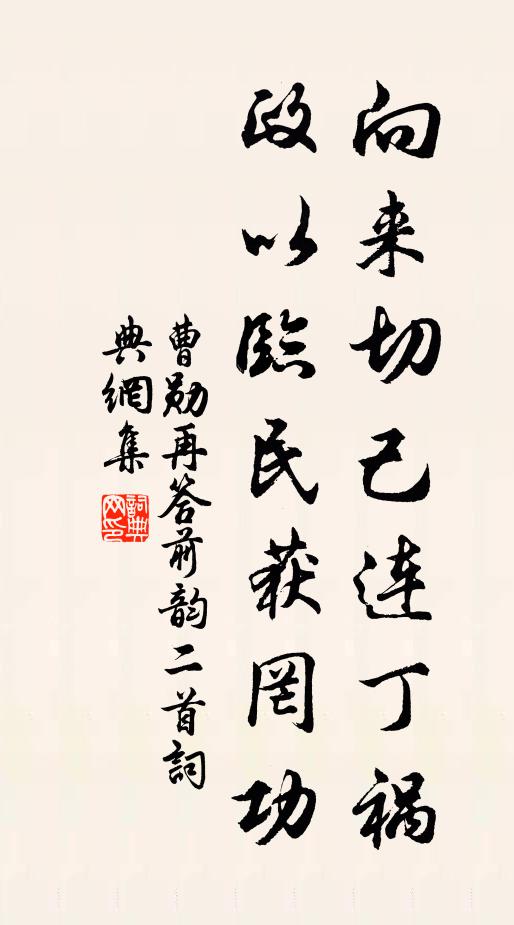 向来切己连丁祸
政以临民获罔功
曹勋再答前韵二首詞
典網集
詞典网印